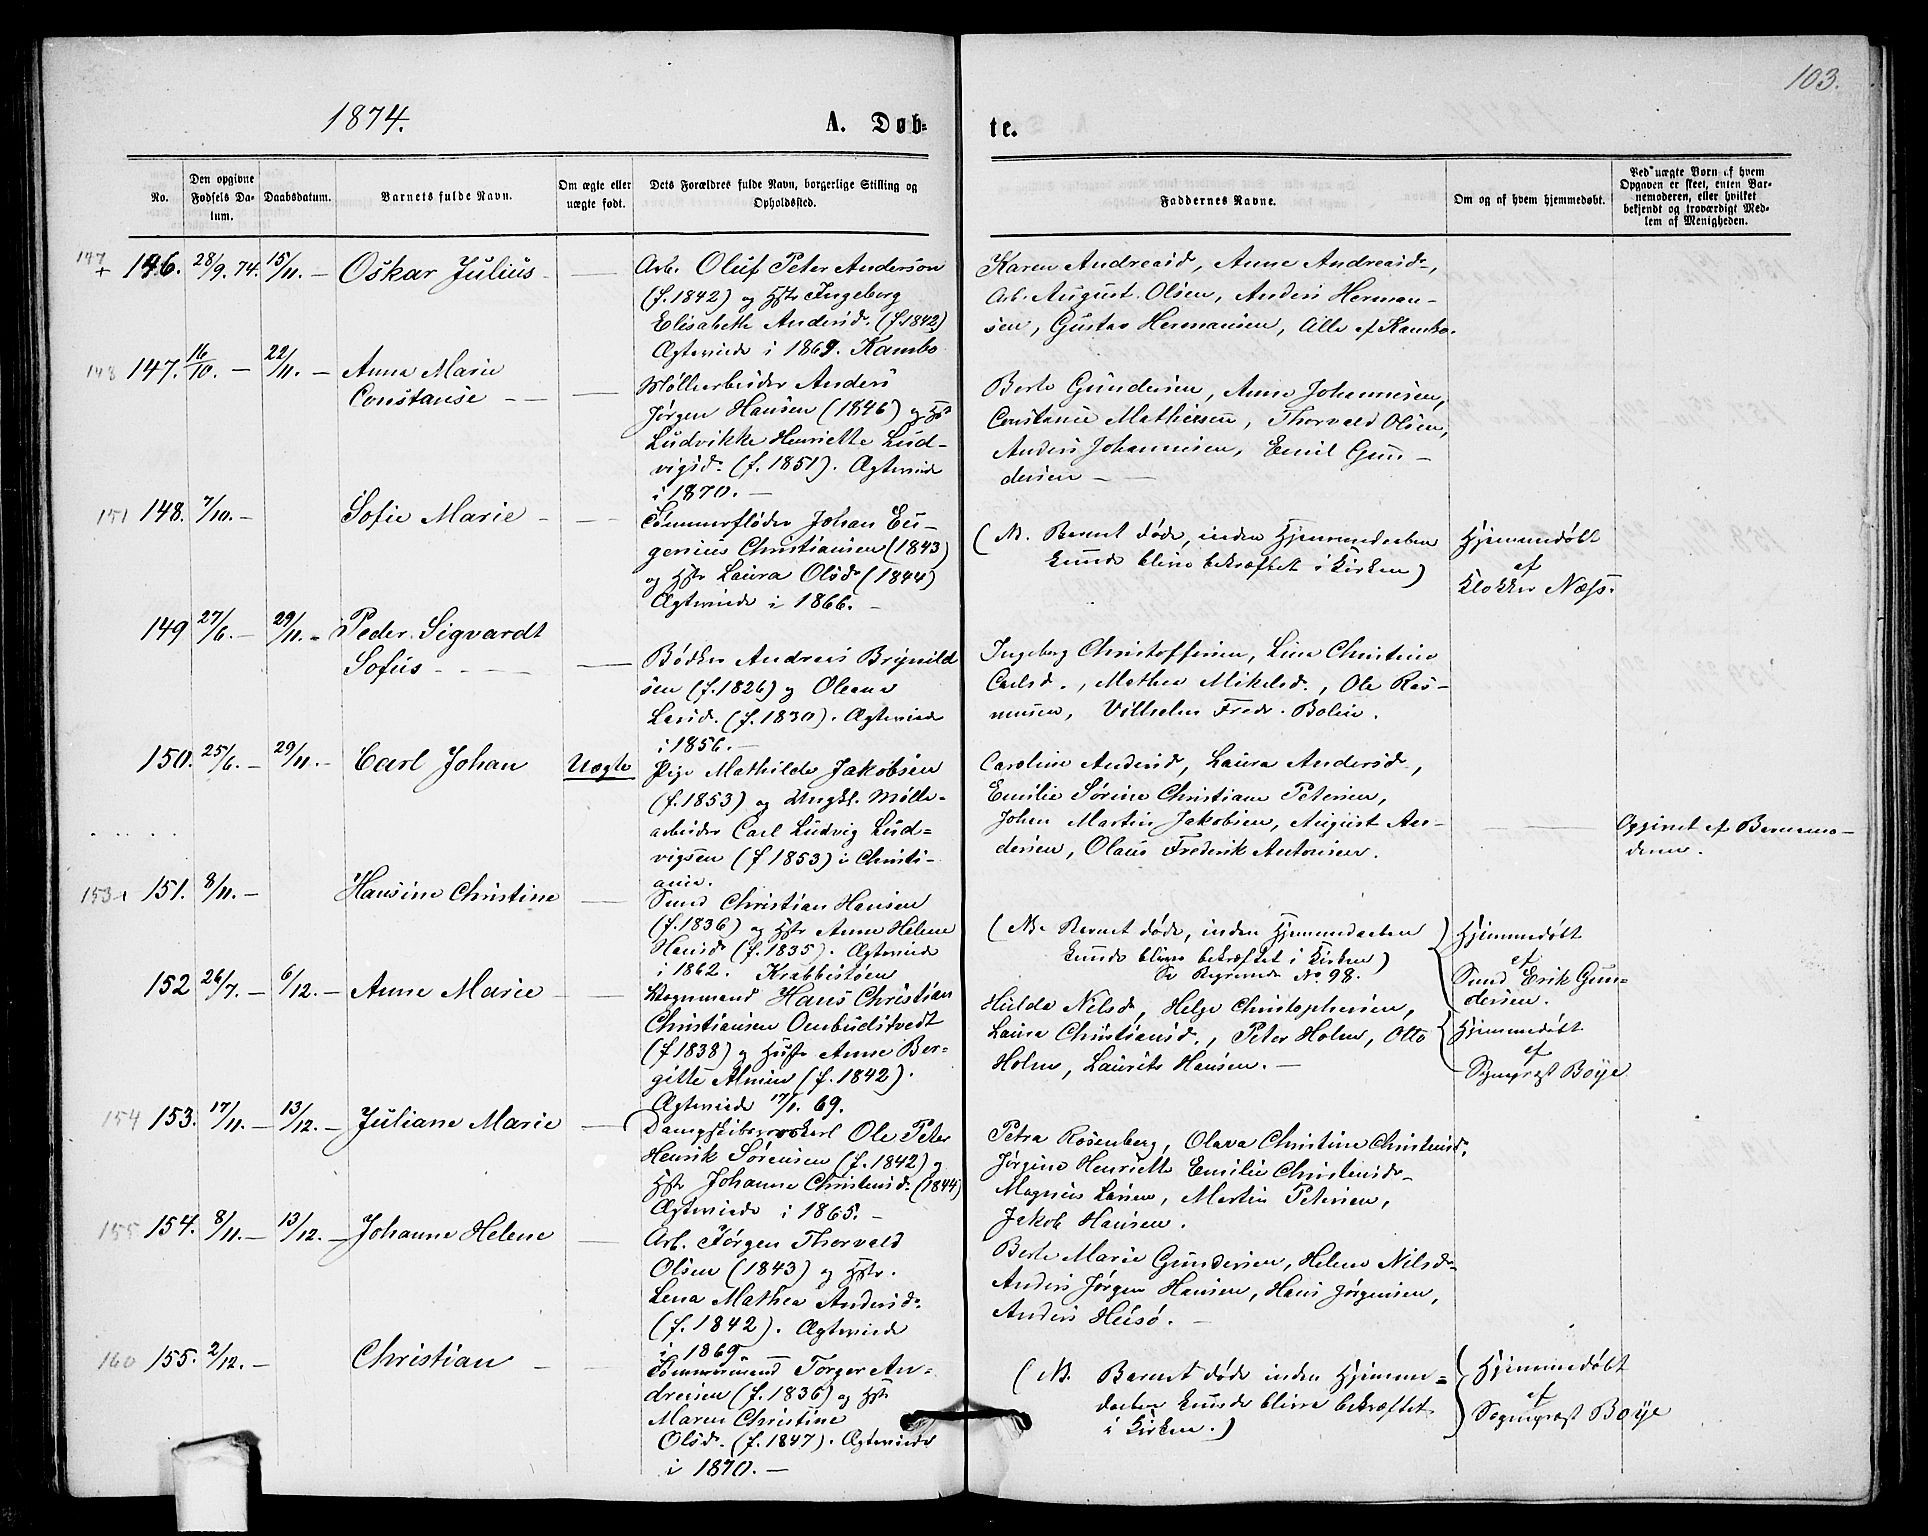 103.
1874.
A. Døb-
te.
No.
Den opgivne Fødsels Da-tum.
Daabsdatum.
Barnets fulde Navn.
Om ægte eller uægte født.
Dets Forældres fulde Navn, borgerlige Stilling og Opholdssted.
Faddernes Navne.
Om og af hvem hjemmedøbt.
Ved uægte Børn af hvem Opgaven er skeet, enten Bar-nemoderen, eller hvilket bekjendt og troværdigt Med-lem af Menigheden.
147
+ 146. 28/9. 74. 15/11. — Oskar Julius
Arb. Oluf Peter Anderson
(f. 1842) og Hstr Ingeborg
Elisabeth Andersd. (f 1842)
Ægteviede i 1869. Kambo
Karen Andreasd., Anne Andreasd.,
Arb. August Olsen, Anders Herman-
sen, Gustav Hermansen, Alle af Kambo.
148 147. 16/10. — 22/11. — Anna Marie
Constanse — —
Møllearbeider Anders
Jørgen Hansen (1846) og Hst
Ludvikke Henriette Lud-
vigsd. (f. 1851). Ægteviede
i 1870. —
Berte Gundersen, Anne Johannesen,
Constance Mathiesen, Thorvald Olsen,
Anders Johannesen, Emil Gun-
dersen — —
151 148. 7/10. — Sofie Marie —
Tømmerfløder Johan Eu-
genius Christiansen (1843)
og Hstr Laura Olsd. (1844)
Ægteviede i 1866. —
(NB. Barnet døde, inden Hjemmedaaben
kunde blive bekræftet i Kirken)
Hjemmedøbt
af
Klokker Næss.
149 27/6. — 29/11. — Peder Sigvardt
Sofus — — —
Bødker Andreas Brynild
sen (f. 1826) og Oleane
Larsd. (f. 1830). Ægteviede
i 1856. —
Ingeborg Christoffersen, Line Christine
Carlsd., Mathea Mikelsd., Ole Ras-
mussen, Vilhelm Fredr. Bolin.
150. 25/6. — 29/11. — Carl Johan Uægte
Pige Mathilde Jakobsen
(f. 1853) og Ungkl. Mølle-
arbeider Carl Ludvig Lud-
vigsen (f 1853) i Christi-
ania.
Caroline Andersd, Laura Andersd.,
Emilie Sørine Christiane Petersen,
Johan Martin Jakobsen, August An-
dersen, Olaus Frederik Antonsen.
Opgivet af Barnemo-
deren.
153 + 151. 8/11. — Hansine Christine
Smed Christian Hansen
(f. 1836) og Hstr Anne Helene
Hansd. (f. 1835). Ægteviede
i 1862. Krabbestøen
(NB. Barnet døde, inden Hjemmedaaben
kunde blive bekræftet i Kirken)
Se Begravede No 98.
Hjemmedøbt
af
Smed Erik Gun-
dersen.
152 26/7. — 6/12. — Anne Marie —
Vognmand Hans Christian
Christiansen Ombudstvedt
(f 1838) og Hustr Anne Ber-
gitte Almin (f. 1842).
Ægteviede 17/1. 69.
Hulda Nilsd, Helge Christophersen,
Laura Christiansd., Peter Holm, Otto
Holm, Laurits Hansen. —
Hjemmedøbt
af
Sognepræst Boye
154 153. 17/11. — 13/12. — Juliane Marie —
Dampskibs karl Ole Peter
Henrik Sørensen (f. 1842) og
Hstr Johanne Christensd. (1844)
Ægteviede i 1865. —
Petra Rosenberg, Olava Christine Christensd.
Jørgine Henriette Emilie Christensd. —
Magnus Larsen, Martin Petersen,
Jakob Hansen.
155 154. 8/11. — 13/12. — Johanne Helene —
Arb. Jørgen Thorvald
Olsen (1843) og Hstr.
Lena Mathea Andersd.
(f. 1842). Ægteviede
i 1869.
Berte Marie Gundersen, Helene Nilsd.
Anders Jørgen Hansen, Hans Jørgensen,
Anders Husø. —
160 155. 2/12. — Christian —
Tømmermand Torger An-
dresen (f. 1836) og Hstr
Maren Christine
Olsd. (f. 1847). Ægteviede
i 1870. —
(NB. Barnet døde inden Hjemme-
daaben kunde blive bekræftet
i Kirken.)
Hjemmedøbt
af
Sognepræst Boye